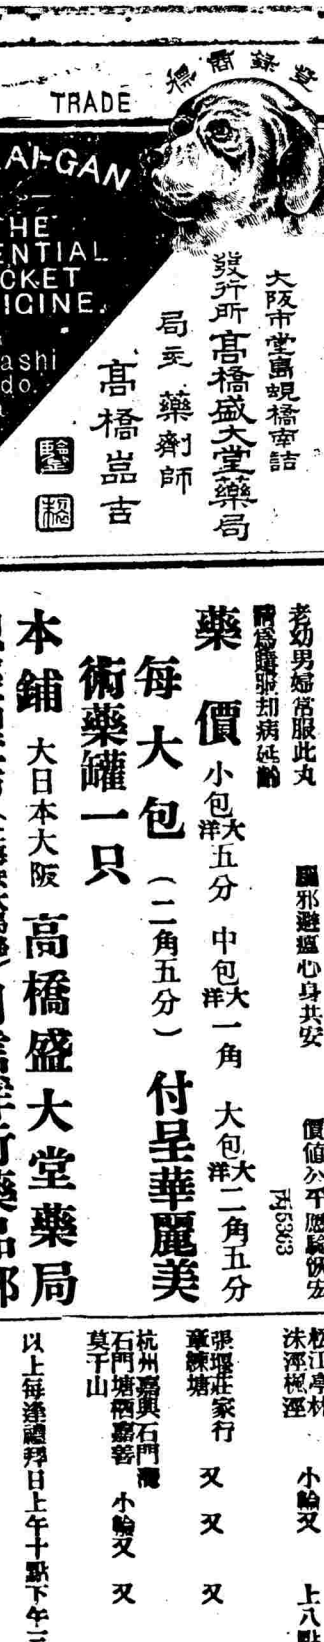 登錄商標
TRADE
AI-GAN
HE
ENTIAL
CKET
ICINE.
ashi
do.
大阪市堂島蜆橋南詰
發行所高橋盛大堂藥局
局主藥劑師
高橋盛吉
老幼男婦常服此丸 驅邪避瘟心身共安 價值公平應驗
請爲購服却病延齡
丙5363
藥價 小包大洋五分 中包大洋一角 大包大洋二角五分
每大包(二角五分)付呈華麗美
術藥罐一只
本鋪 大日本大阪 高橋盛大堂藥局
松江亭林 小輪又 上八點
洙涇楓涇
張堰莊家行 又 又 又
章練塘
杭州嘉興石門灣
石門塘栖嘉善 小輪又 又
莫干山
以上每逢禮拜日上午十點下午二